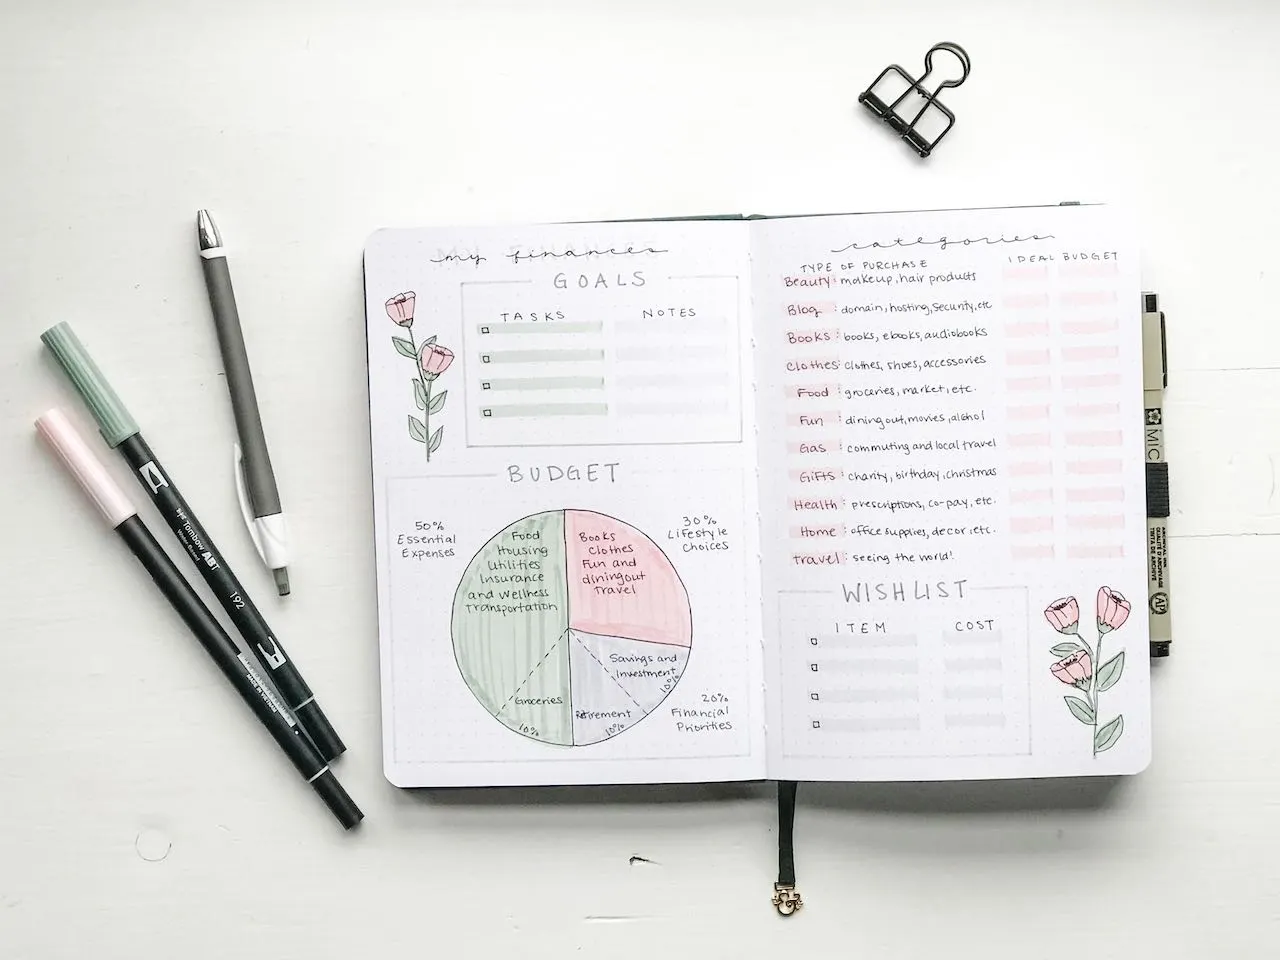 my finances
GOALS
TASKS NOTES
BUDGET
50%
Essential
Expenses
Food
Housing
Utilities
Insurance
and Wellness
Transportation
Groceries
10%
30%
Lifestyle
Choices
Books
Clothes
Fun and
diningout
Travel
Savings and
Investment
10%
Retirement
10%
20%
Financial
Priorities
categories
TYPE OF PURCHASE IDEAL BUDGET
Beauty: makeup, hair products
Blog : domain, hosting, security, etc
Books : books, ebooks, audiobooks
Clothes: clothes, shoes, accessories
Food : groceries, market, etc.
Fun : dining out, movies, alcohol
Gas : commuting and local travel
Gifts : charity, birthday, christmas
Health : prescriptions, co-pay, etc.
Home : office supplies, decor, etc.
travel : seeing the world!
WISHLIST
ITEM COST
Tombow ABT
192
MADE IN VIETNAM
MIC
ARCHIVAL INK
QUALITÉ D'ARCHIVAGE
TINTA DE ARCHIVE
AP